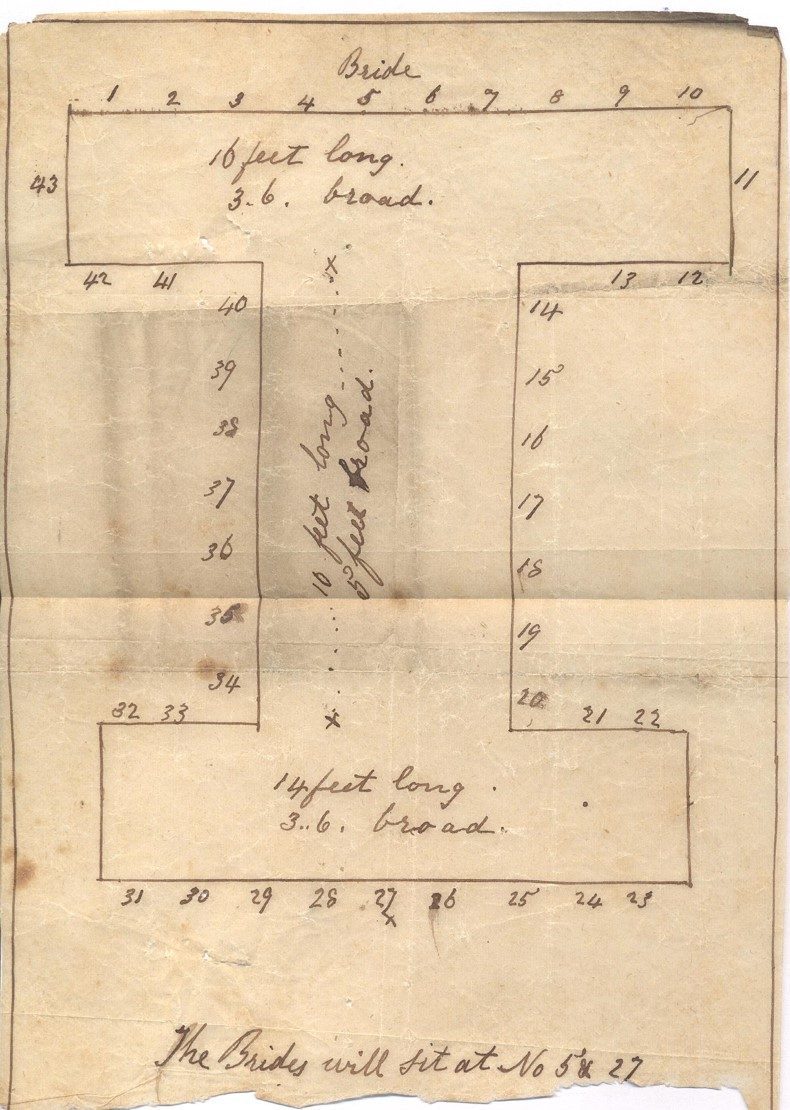 Bride
1 2 3 4 5 6 7 8 9 10
16 feet long.
3.6. broad.
43
11
42 41
13 12
40
14
39
15
38
16
37
17
36
18
35
19
34
20
10 feet long
5 feet broad.
x
x
32 33
21 22
14 feet long.
3..6. broad.
31 30 29 28 27 26 25 24 23
x
The Brides will sit at No 5 & 27